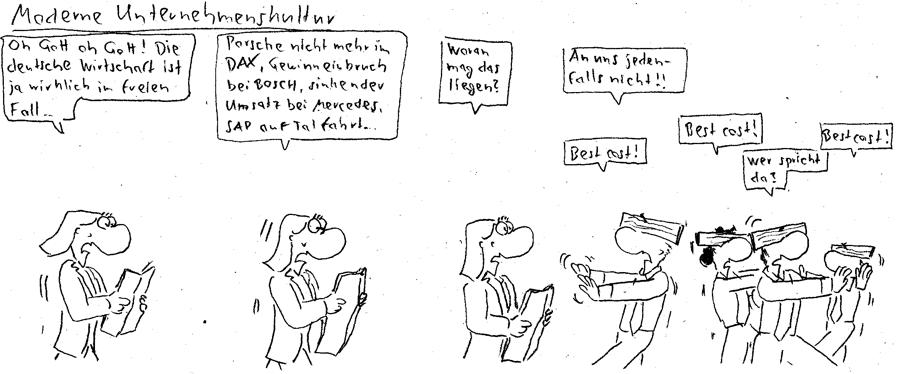 Moderne Unternehmenskultur
Oh Gott oh Gott! Die
deutsche Wirtschaft ist
ja wirklich in freien
Fall...
Porsche nicht mehr in
DAX, Gewinneinbruch
bei Bosch, sinkender
Umsatz bei Mercedes,
SAP auf Talfahrt...
Woran
mag das
liegen?
An uns jeden-
falls nicht!!
Best cost!
Best cost!
Wer spricht
da?
Best cost!